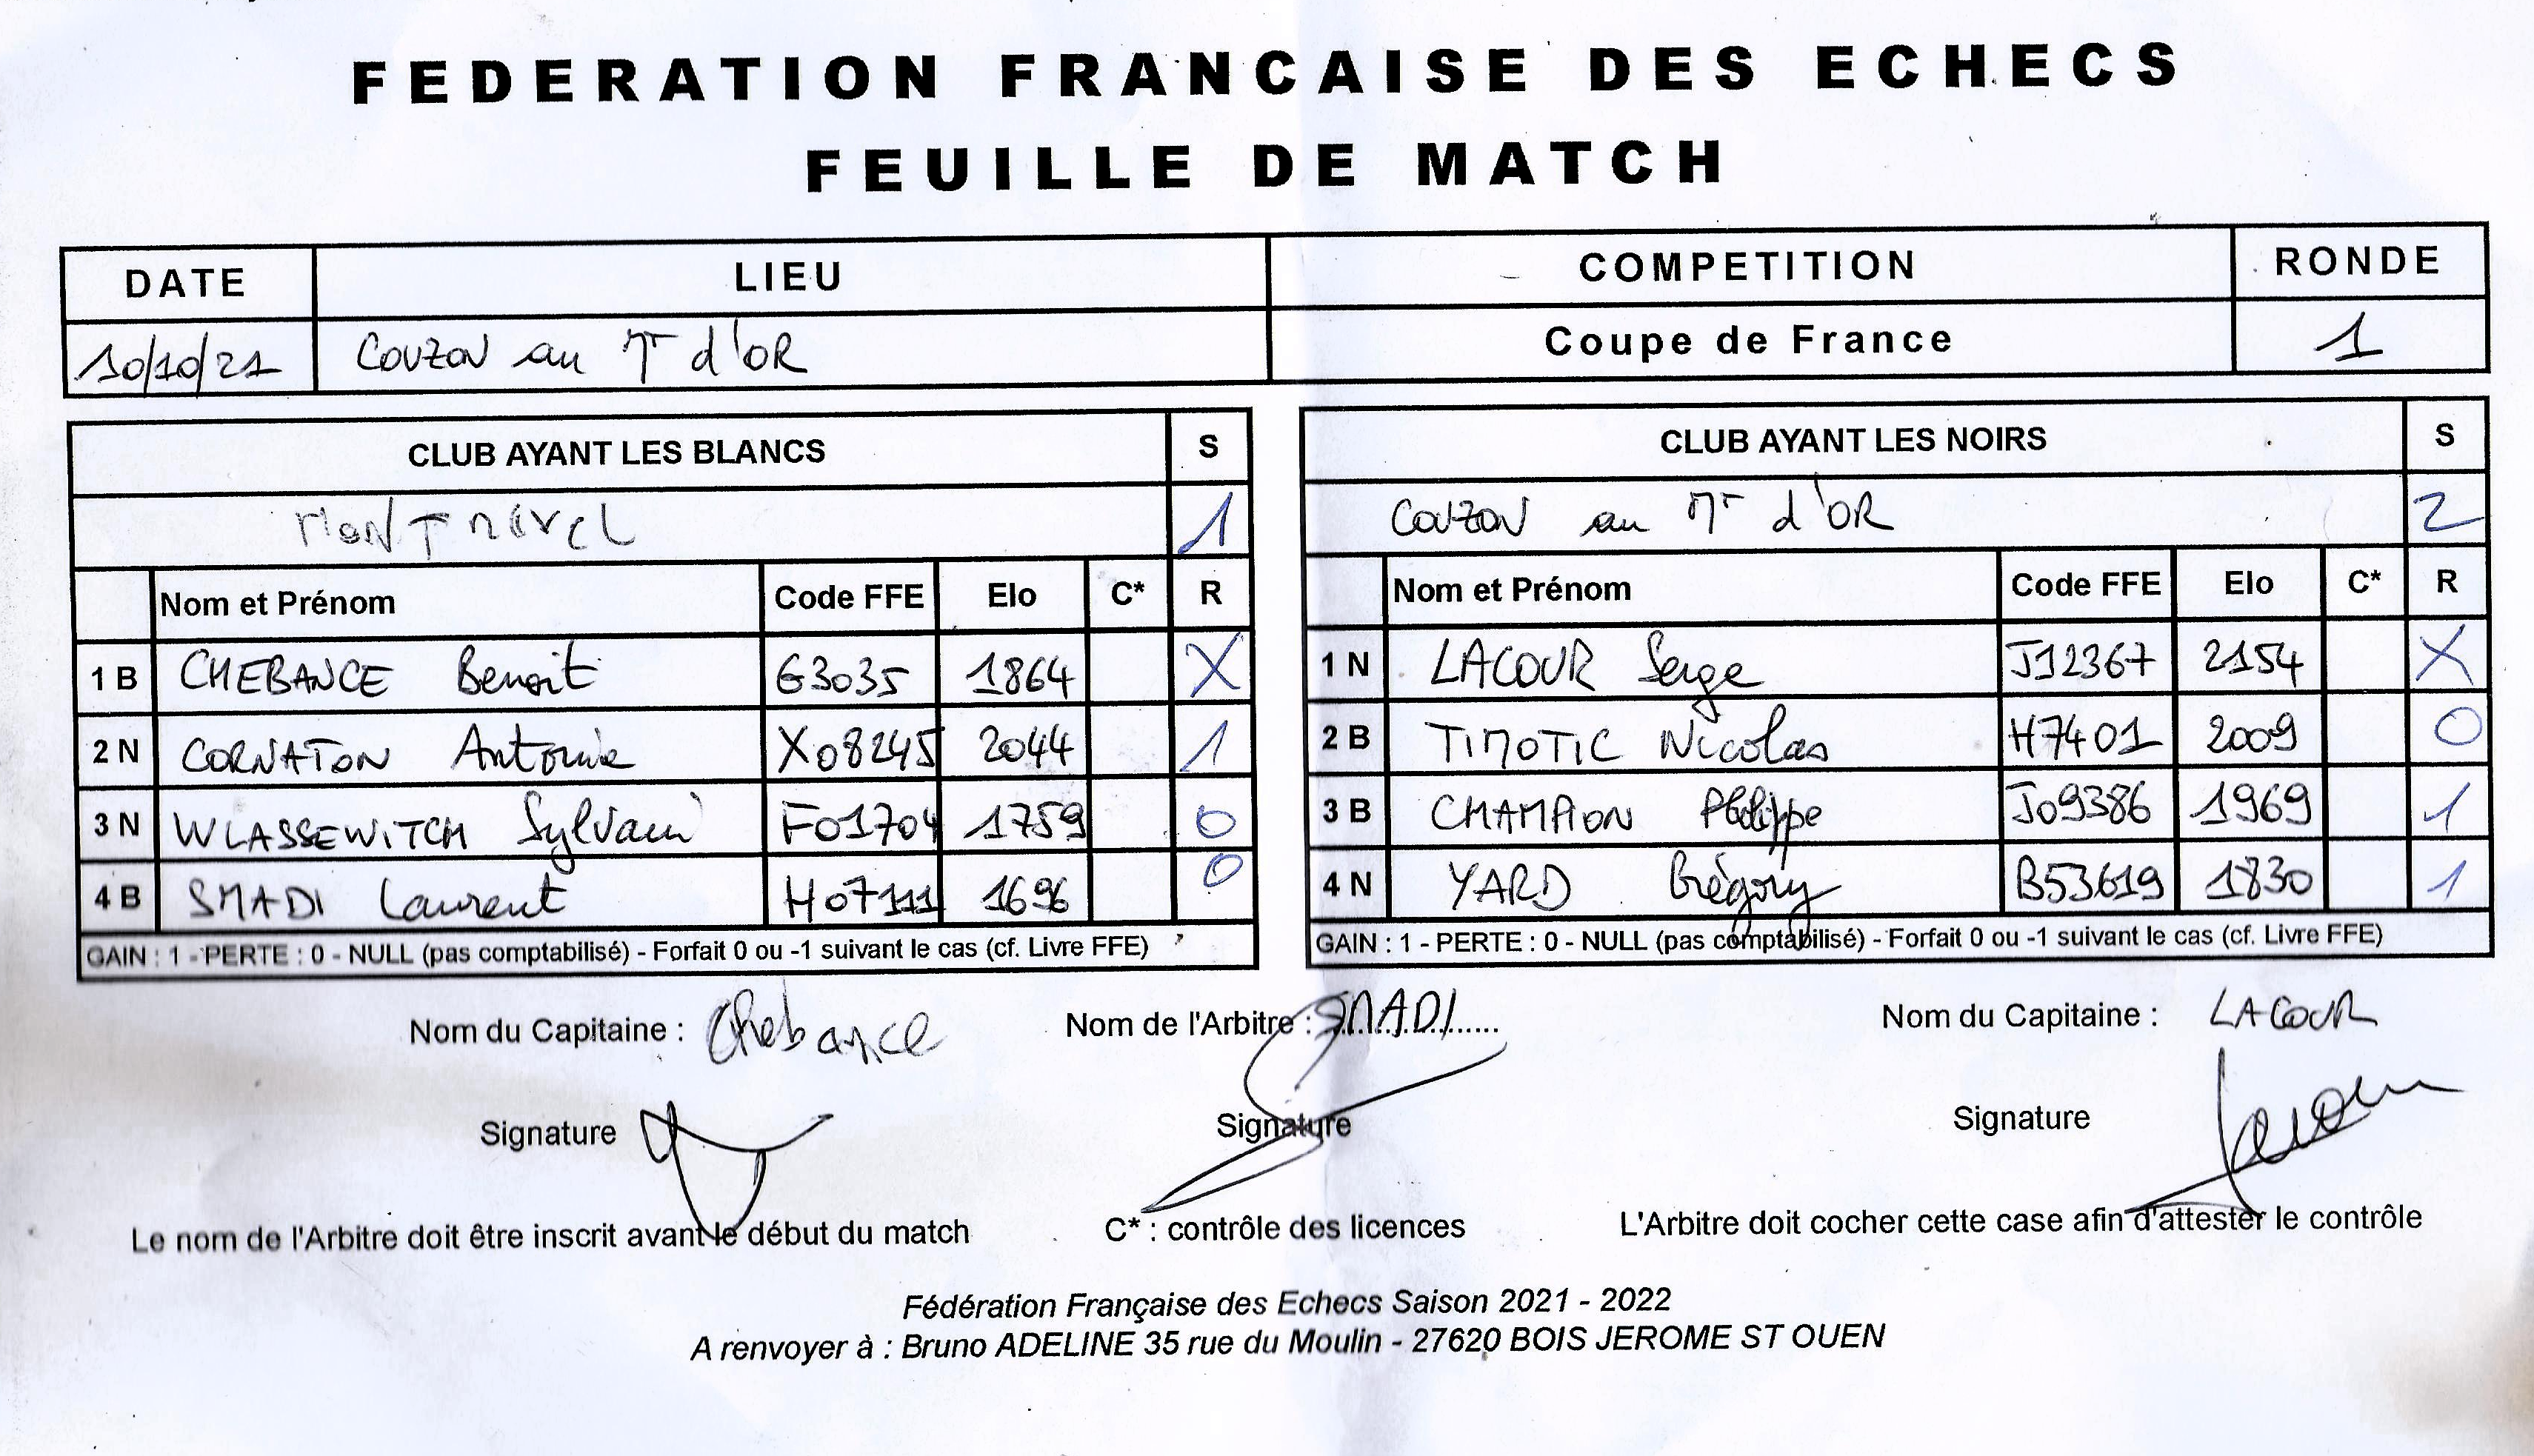 FEDERATION FRANCAISE DES ECHECS
FEUILLE DE MATCH
DATE LIEU COMPETITION RONDE
10/10/21 COUZON au Mt d'OR Coupe de France 1
CLUB AYANT LES BLANCS S CLUB AYANT LES NOIRS S
MONTREVEL 1 COUZON au Mt d'OR 2
Nom et Prénom Code FFE Elo C* R Nom et Prénom Code FFE Elo C* R
1 B CHEBANCE Benoit G3035 1864 X 1 N LACOUR Serge J12367 2154 X
2 N CORNATON Antonin X08245 2044 1 2 B TIMOTIC Nicolas H7401 2009 0
3 N WLASSEWITCH Sylvain F01704 1759 0 3 B CHAMPION Philippe J09386 1969 1
4 B SMADI Laurent H07111 1696 0 4 N YARD Grégory B53619 1830 1
GAIN : 1 - PERTE : 0 - NULL (pas comptabilisé) - Forfait 0 ou -1 suivant le cas (cf. Livre FFE) GAIN : 1 - PERTE : 0 - NULL (pas comptabilisé) - Forfait 0 ou -1 suivant le cas (cf. Livre FFE)
Nom du Capitaine : Chebance Nom de l'Arbitre : SMADI Nom du Capitaine : LACOUR
Signature Signature Signature
Le nom de l'Arbitre doit être inscrit avant le début du match C* : contrôle des licences L'Arbitre doit cocher cette case afin d'attester le contrôle
Fédération Française des Echecs Saison 2021 - 2022
A renvoyer à : Bruno ADELINE 35 rue du Moulin - 27620 BOIS JEROME ST OUEN